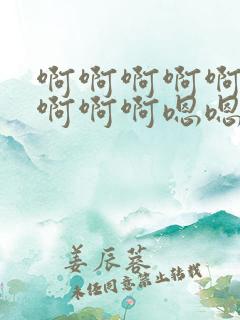 啊啊啊啊啊
啊啊啊嗯嗯
姜辰蓉
未经同意禁止转载